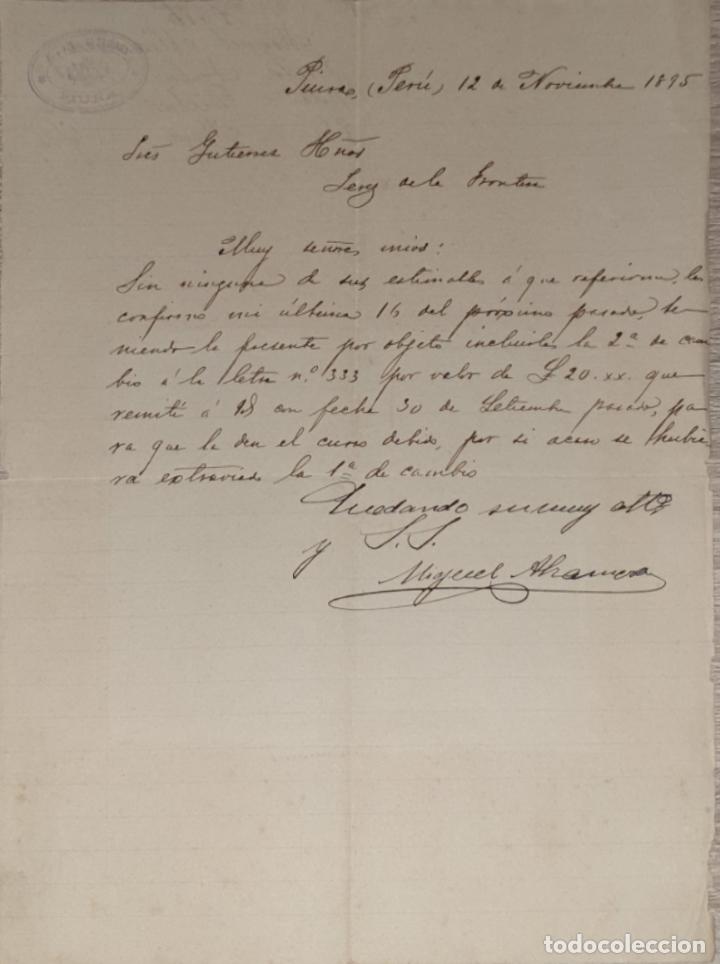 Piura, (Perú) 12 de Noviembre 1895
Sres Gutierrez Hños
Jerez de la Frontera
Muy señores mios:
Sin ninguna de sus estimables á que referirme, les
confirmo mi última 16 del próximo pasado, te
niendo la presente por objeto incluirles la 2ª de cam
bio á la letra nº 333 por valor de £ 20.xx. que
remití á Vds con fecha 30 de Setiembre pasado, pa
ra que la den el curso debido, por si acaso se hubie
ra extraviado la 1ª de cambio
Quedando su muy atto
y S.S.
Miguel
todocoleccion